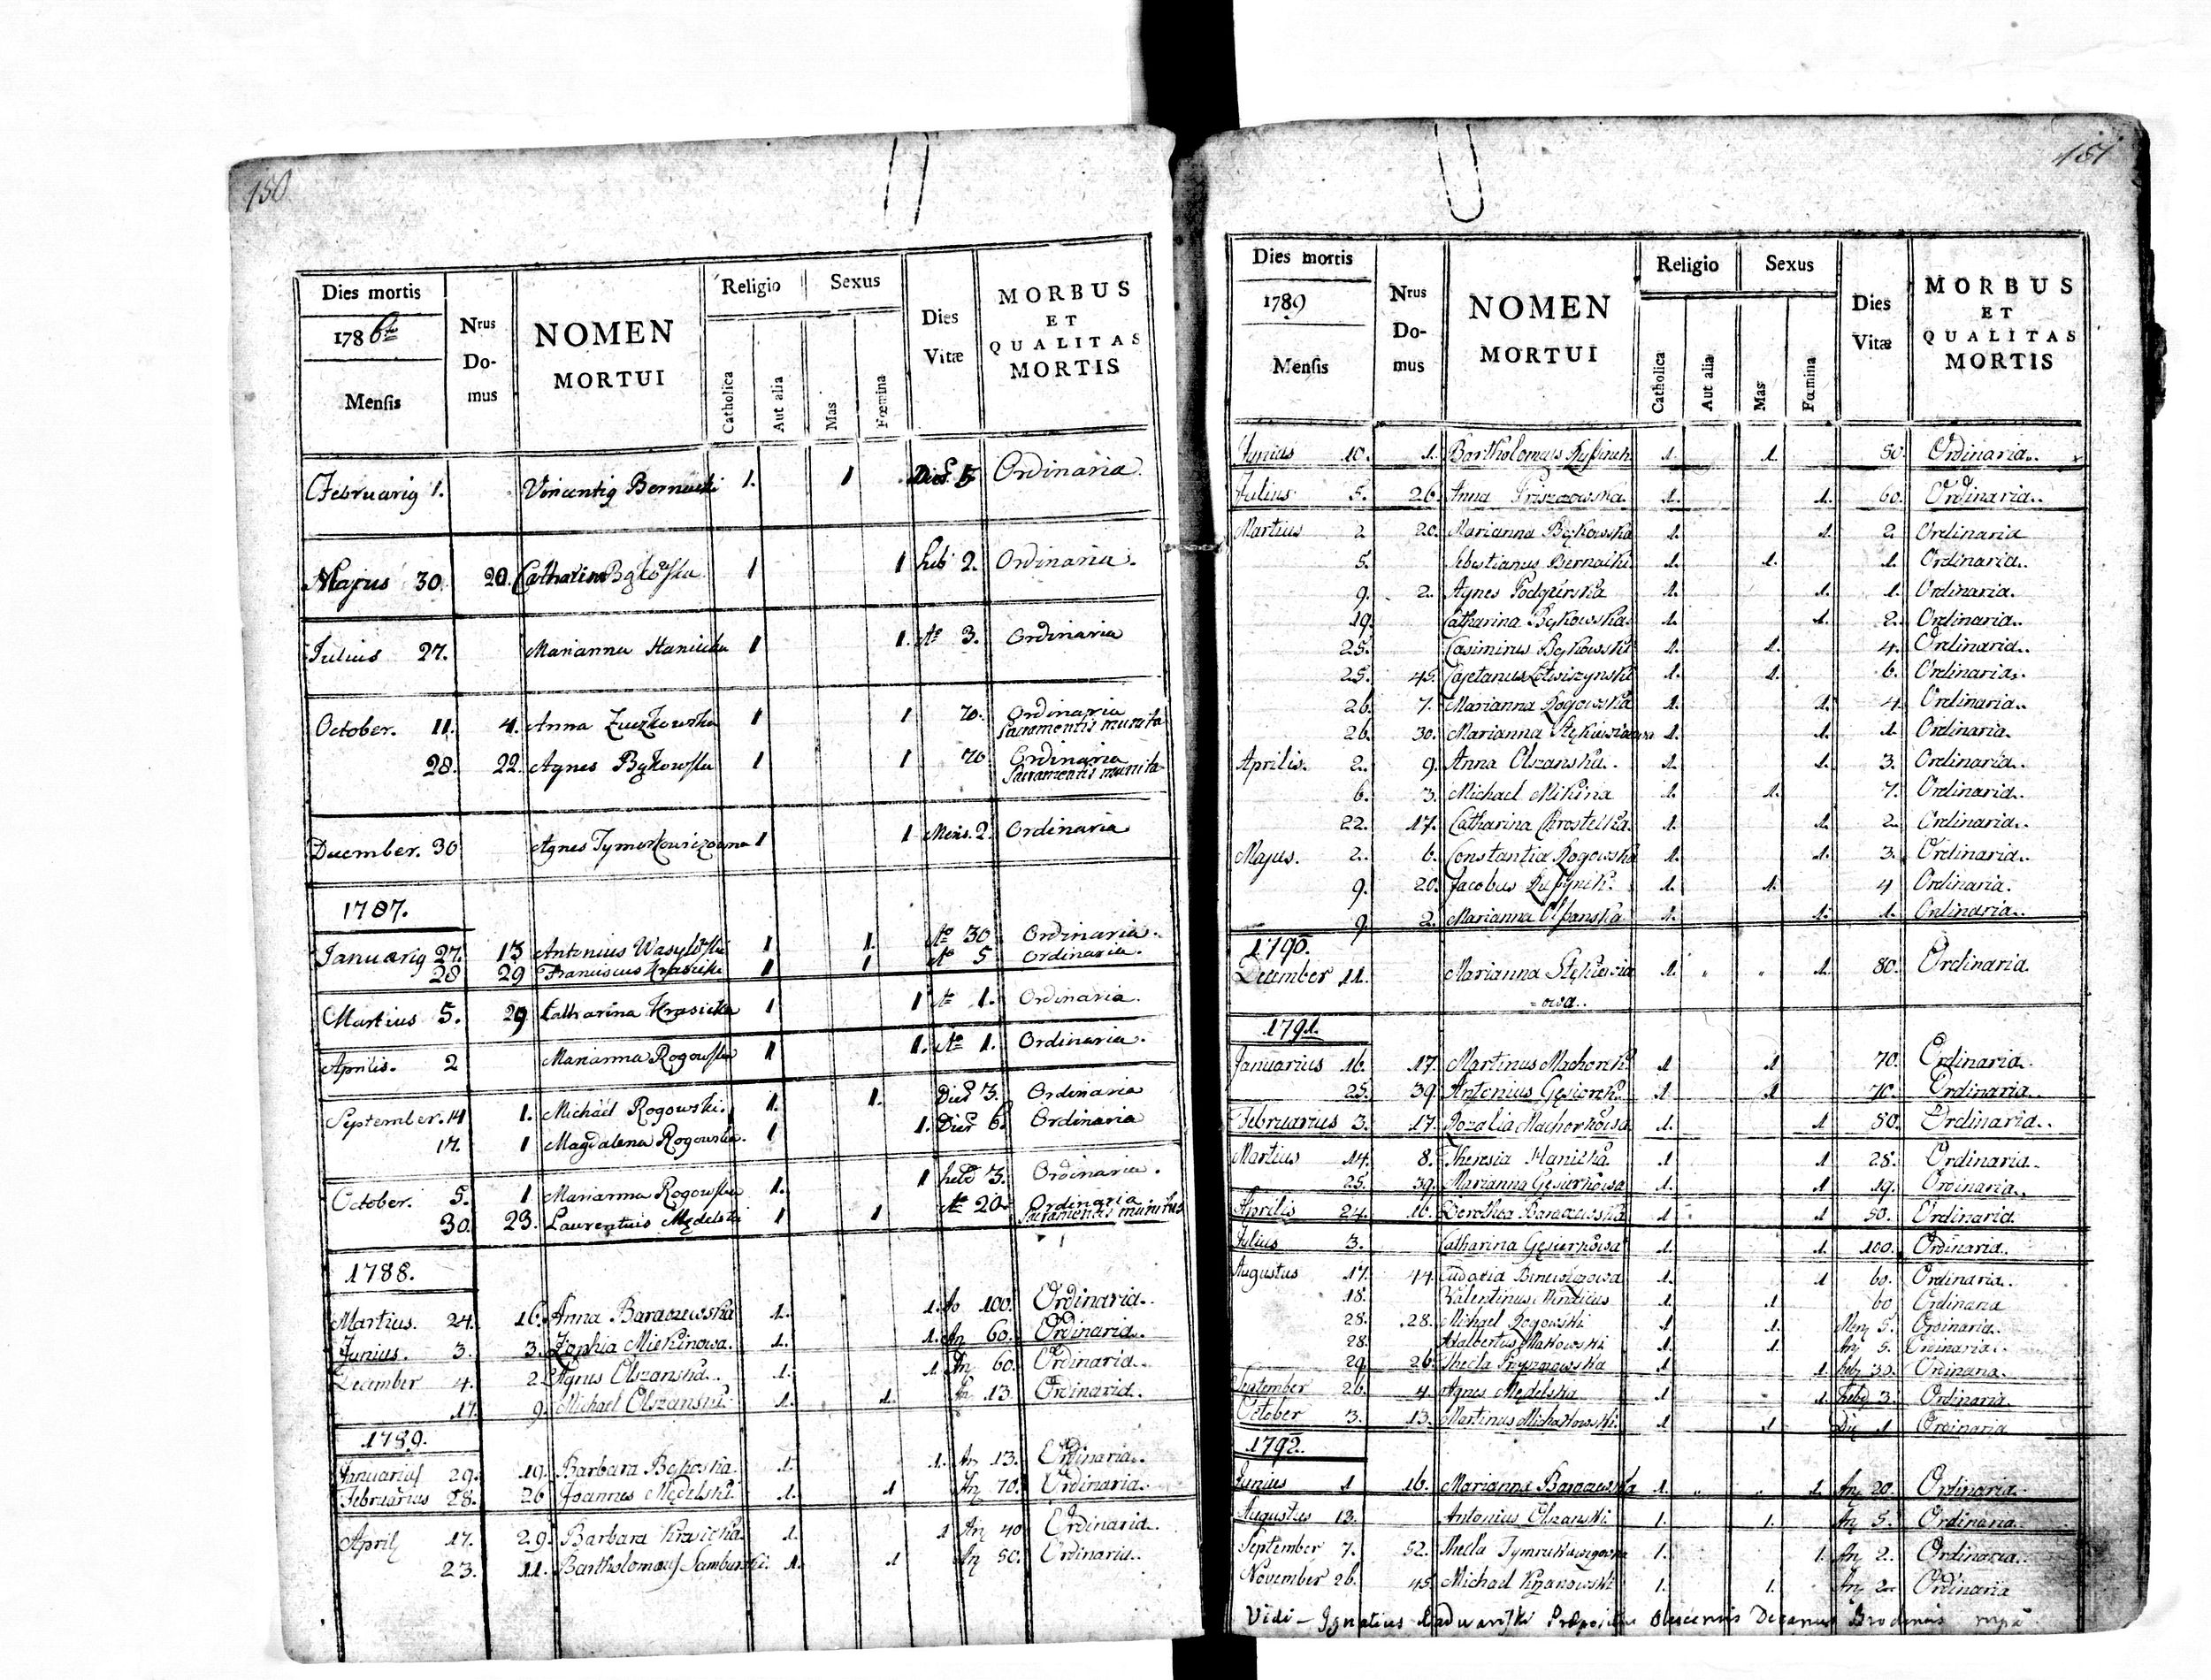 150
Dies mortis
1786
Mensis
Nrus Do- mus
NOMEN MORTUI
Religio
Catholica
Aut alia
Sexus
Mas
Fœmina
Dies Vitæ
MORBUS ET QUALITAS MORTIS
Februarig 1. Vincentig 1. 1 Ordinaria
Majus 30. 20. Catharina 1 1 heb 2. Ordinaria.
Julius 27. Marianna Hanicka 1 1. Ao 3. Ordinaria
October. 11. 4. Anna 1 1 70. Ordinaria
Sacramentis munita
28. 22. Agnes Bąkowska 1 1 70 Ordinaria
Sacramentis munita
December. 30 Agnes 1 1 Mens. 2. Ordinaria
1787.
Januarig 27. 13 Antonius 1 1. Ao 30 Ordinaria.
28 29 Franciscus Krasicki 1 1 Ao 5 Ordinaria.
Martius 5. 29 Catharina Krasicka 1 1 Ao 1. Ordinaria.
Aprilis. 2 Marianna Rogowska 1 1. Ao 1. Ordinaria.
September. 14 1. Michaël Rogowski. 1. 1. Die 3. Ordinaria
17. 1 Magdalena Rogowska. 1 1. Die 6. Ordinaria
October. 5. 1 Marianna Rogowska 1. 1 heb 3. Ordinaria.
30. 23. Laurentius Mędelski 1 1 Ao 20. Ordinaria
Sacramentis munitus
1788.
Martius. 24. 16. Anna Baraczewska 1. 1. Ao 100. Ordinaria.
Junius. 3. 3. Zophia Miekinowa. 1. 1. An 60. Ordinaria.
December 4. 2 Agnes Olszanska. 1. 1 An 60. Ordinaria.
17. 9. Michael Olszanski. 1. 1. An 13. Ordinaria.
1789.
Januarius 29. 19. Barbara 1. 1. An 13. Ordinaria.
Februarius 28. 26 Joannes Mędelski. 1. 1 An 70. Ordinaria.
April 17. 29. Barbara Krasicka. 1. 1 An 40 Ordinaria.
23. 11. Bartholomaus 1. 1 An 50. Ordinaria.
151
Dies mortis
1789
Mensis
Nrus Do- mus
NOMEN MORTUI
Religio
Catholica
Aut alia
Sexus
Mas
Fœmina
Dies Vitæ
MORBUS ET QUALITAS MORTIS
Junius 10. 1. Bartholomeus 1. 1. 50. Ordinaria.
Julius 5. 26. Anna 1. 1. 60. Ordinaria.
Martius 2 20. Marianna Bąkowska 1. 1. 2 Ordinaria
5. Sebestianus Bernacki 1. 1. 1. Ordinaria.
9. 2. Agnes Podgurska 1. 1. 1. Ordinaria.
19. Catharina Bąkowska 1. 1. 2. Ordinaria.
25. Casimirus Bąkowski 1. 1. 4. Ordinaria.
25. 45. Cajetanus 1. 1. 6. Ordinaria.
26. 7. Marianna Rogowska 1. 1. 4. Ordinaria.
26. 30. Marianna 1. 1. 1. Ordinaria.
Aprilis. 2. 9. Anna Olszanska. 1. 1. 3. Ordinaria.
6. 3. Michael Mikina 1. 1. 7. Ordinaria.
22. 17. Catharina 1. 1. 2. Ordinaria.
Majus. 2. 6. Constantia Rogowska 1. 1. 3. Ordinaria.
9. 20. Jacobus 1. 1. 4 Ordinaria.
9 2. Marianna Olszanska 1. 1. 1. Ordinaria.
1790.
December 11. Marianna 1. " " 1. 80. Ordinaria.
-owa.
1791.
Januarius 16. 17. Martinus 1 1 70. Ordinaria.
25. 39. Antonius 1 1 70. Ordinaria.
Februarius 3. 17. Rozalia 1. 1 50. Ordinaria.
Martius 14. 8. Theresia Hanicka 1 1 28. Ordinaria.
25. 39. Marianna 1. 1 19. Ordinaria.
Aprilis 24. 16. Dorothea Baraczewska 1 1 50. Ordinaria
Julius 3. Catharina 1. 1. 100. Ordinaria.
Augustus 17. 44. 1. 1 60. Ordinaria.
18. Valentinus 1. 1 60 Ordinaria
28. 28. Michael Rogowski 1 1. 5. Ordinaria.
28. Adalbertus Makowski 1 1. 5. Ordinaria.
29 26. Thecla 1 1. 30. Ordinaria.
September 26. 4. Agnes Mędelska 1 1. 3. Ordinaria.
October 3. 13. Martinus Michałowski. 1 1 Die 1 Ordinaria
1792.
Junius 1 16. Marianna Baraczewska 1. " " 1. An 20. Ordinaria.
Augustus 13. Antonius Olszanski 1. 1. An 5. Ordinaria.
September 7. 52. Thecla 1. 1. An 2. Ordinaria.
November 26. 45. Michael 1. 1. An 2. Ordinaria
Vidi - Ignatius Præpositus Decanus mpa